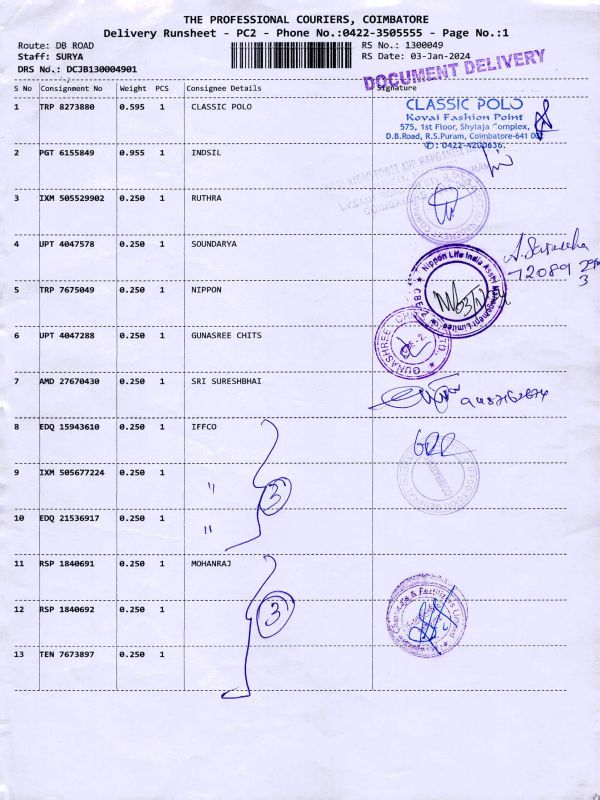 THE PROFESSIONAL COURIERS, COIMBATORE
Delivery Runsheet - PC2 - Phone No.:0422-3505555 - Page No.:1
Route: DB ROAD
Staff: SURYA
DRS No.: DCJB130004901
RS No.: 1300049
RS Date: 03-Jan-2024
DOCUMENT DELIVERY
S No Consignment No Weight PCS Consignee Details Signature
1 TRP 8273880 0.595 1 CLASSIC POLO
CLASSIC POLO
Kovai Fashion Point
575, 1st Floor, Shylaja Complex,
D.B.Road, R.S.Puram, Coimbatore-641 002
✆: 0422-4200636.
2 PGT 6155849 0.955 1 INDSIL
3 IXM 505529902 0.250 1 RUTHRA
4 UPT 4047578 0.250 1 SOUNDARYA
5 TRP 7675049 0.250 1 NIPPON
Nippon Life India Asset Management Limited
6 UPT 4047288 0.250 1 GUNASREE CHITS
7 AMD 27670430 0.250 1 SRI SURESHBHAI
8 EDQ 15943610 0.250 1 IFFCO
9 IXM 505677224 0.250 1 "
3
10 EDQ 21536917 0.250 1 "
11 RSP 1840691 0.250 1 MOHANRAJ
12 RSP 1840692 0.250 1
3
13 TEN 7673897 0.250 1